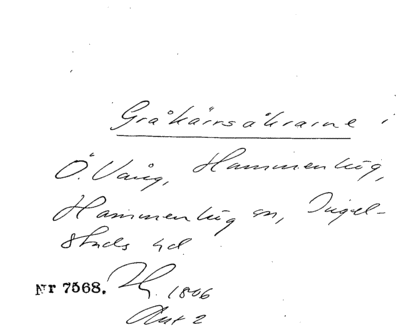 Gråkärrsåkrarne i
Ö. Vång, Hammenhög,
Hammenhög sn, Ingel-
stads hd.
Nr 7568. 1806
Akt 2